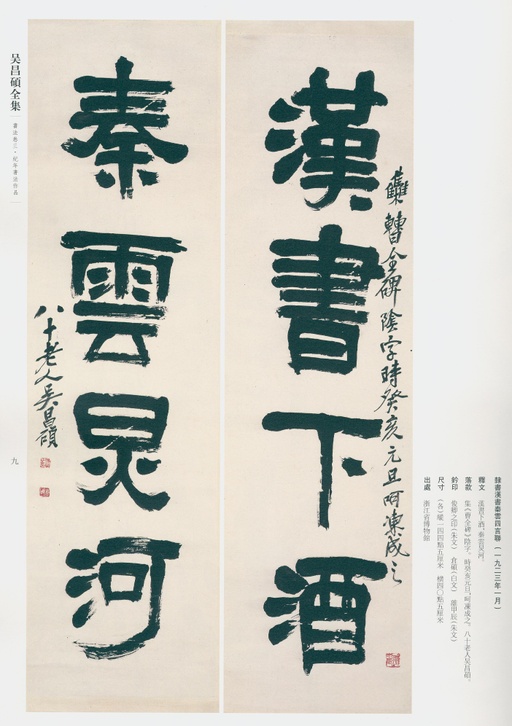 隸書漢書秦雲四言聯（一九二三年一月）
釋文 漢書下酒，秦雲炅河。
落款 集《曹全碑》陰字。時癸亥元旦，呵凍成之。八十老人吴昌碩。
鈐印 俊卿之印（朱文） 倉碩（白文）
尺寸 （各）縱一四四點五厘米 橫四〇點五厘米
出處 浙江省博物館
雧曹全碑陰字時癸亥元旦呵凍成之
漢書下酒
秦雲炅河
八十老人吴昌碩
吴昌碩全集
書法卷三·紀年書法作品
九